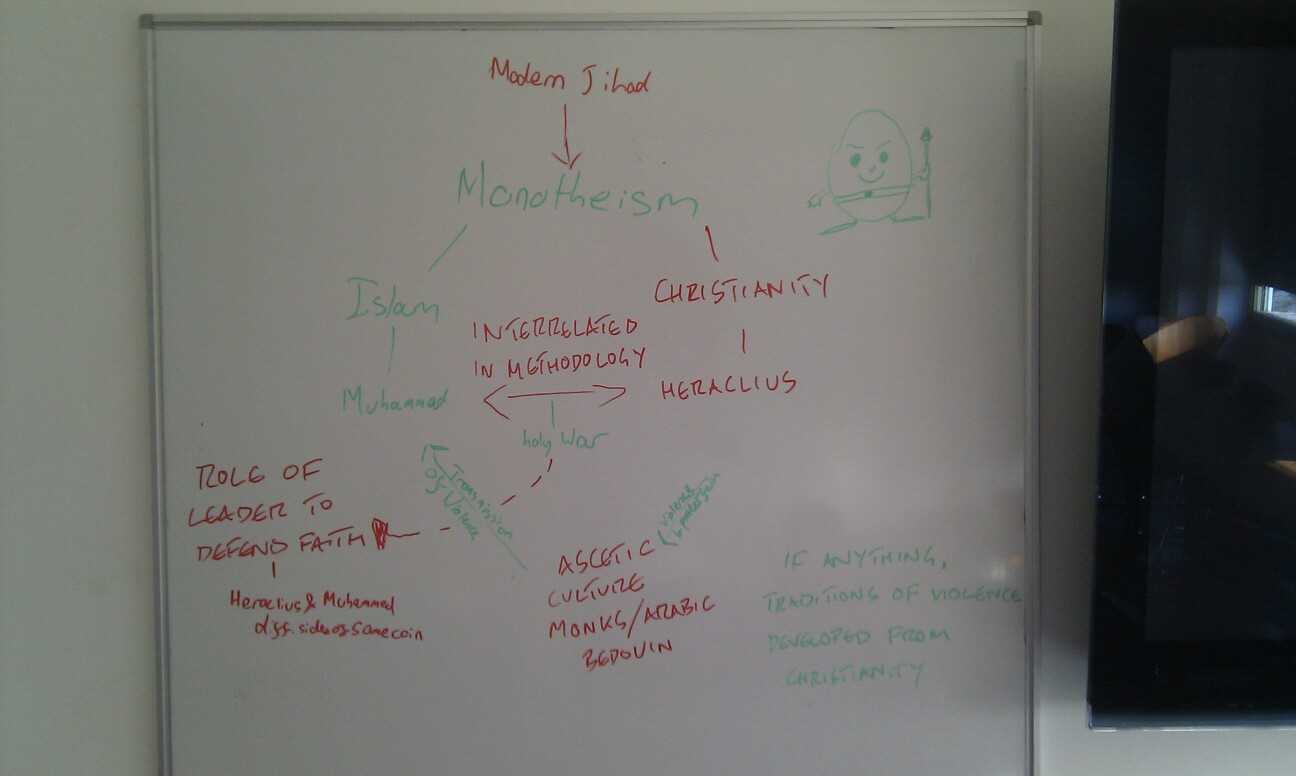 Modern Jihad
Monotheism
Islam
CHRISTIANITY
INTERRELATED
IN METHODOLOGY
Muhammad
HERACLIUS
holy War
ROLE OF
LEADER TO
DEFEND FAITH
Heraclius & Muhammad
diff. sides of same coin
Transmission
of Violence
violence
ASCETIC
CULTURE
MONKS/ARABIC
BEDOUIN
IF ANYTHING,
TRADITIONS OF VIOLENCE
DEVELOPED FROM
CHRISTIANITY